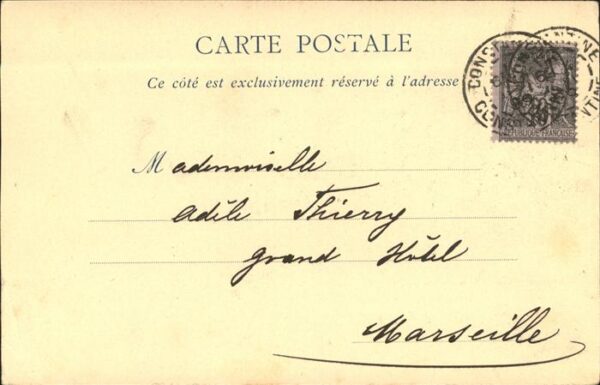 CARTE POSTALE
Ce côté est exclusivement réservé à l'adresse
CONSTANTINE
CONSTANTINE
RÉPUBLIQUE FRANÇAISE
Mademoiselle
Adèle Thierry
Grand Hôtel
Marseille